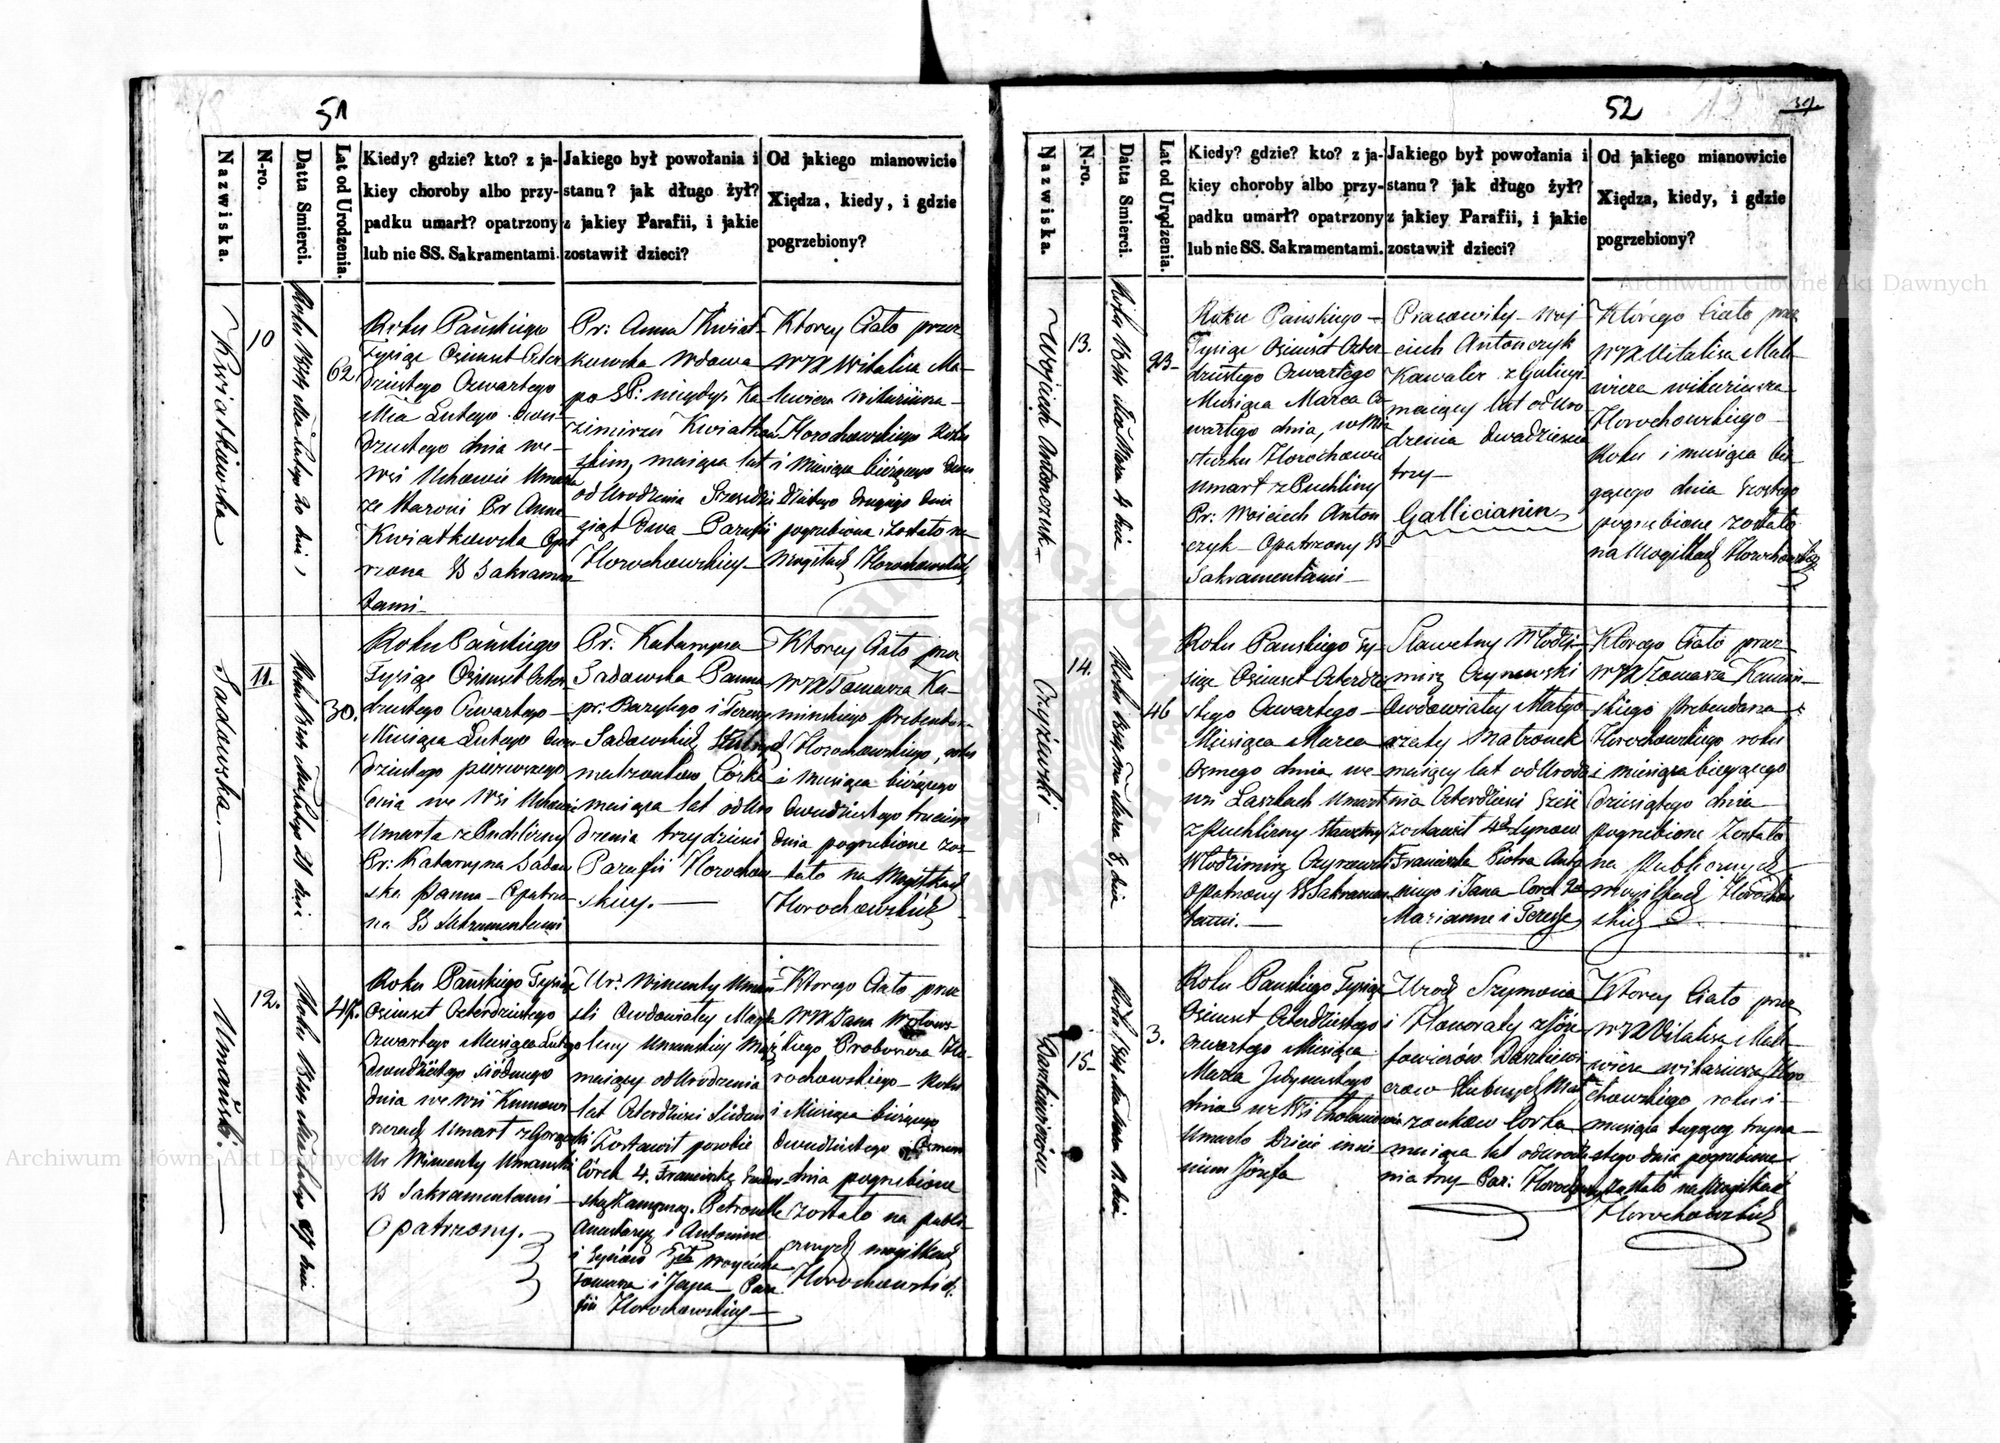 51
Nazwiska.
N-ro.
Datta Smierci.
Lat od Urodzenia.
Kiedy? gdzie? kto? z ja-
kiey choroby albo przy-
padku umarł? opatrzony
lub nie SS. Sakramentami.
Jakiego był powołania i
stanu? jak długo żył?
z jakiey Parafii, i jakie
zostawił dzieci?
Od jakiego mianowicie
Xiędza, kiedy, i gdzie
pogrzebiony?
Kwiatkowska
10
Roku 1844 Mca Lutego 20 dnia
62
Roku Pańskiego
Tysiąc Osimset Czter
dziestego Czwartego
Mca Lutego dwu
dziestego dnia we
Wsi Uchowie Umarła
ze Starości Pr Anna
Kwiatkowska Opat
rzona SS Sakramen
tami
Pr: Anna Kwiat-
kowska Wdowa
po SP: niegdyś Ka
zimierzu Kwiatkow
skim, maiąca lat
od Urodzenia Sześćdzi
siąt dwa Parafii
Horochowskiey
Ktorey Ciało przez
WX Witalisa Ma-
kwiera Wikariusza
Horochowskiego Roku
i Miesiąca bieżącego dwu
dziestego drugiego dnia
pogrzebione zostało na
Mogiłach Horochowskich
Sadowska
11.
Roku 1844 Mca Lutego 21 dnia
30.
Roku Pańskiego
Tysiąc Osimset Czter
dziestego Czwartego
Miesiąca Lutego dwu
dziestego pierwszego
dnia we Wsi
Umarła z Puchliny
Pr: Katarzyna Sadow
ska Panna Opatrzo
na SS Sakramentami
Pr. Katarzyna
Sadowska Panna
pr. Bazylego i Teressy
Sadowskich Ślubnych
małżonków Córka
maiąca lat od Uro
dzenia trzydzieści
Parafii Horochow
skiey.
Ktorey Ciało przez
WX Tomasza Ka-
minskiego Prebendar.
Horochowskiego, roku
i miesiąca bieżącego
dwudziestego trzeciego
dnia pogrzebione zos-
tało na Mogiłkach
Horochowskich
Umański.
12.
Roku 1844 Mca Lutego 27 dnia
47.
Roku Pańskiego Tysiąc
Osimset Czterdziestego
Czwartego Miesiąca Lutego
dwudziestego siódmego
dnia we Wsi
Umarł z Gorączki
Ur Wincenty Umanski
SS Sakramentami
Opatrzony.
Ur: Wincenty Uman
ski Owdowiałey Magda
leny Umanskiey Mąż
maiący od Urodzenia
lat Czterdzieści Siedem
Zostawił po sobie
Córek 4. Franciszkę
Petronellę
Anastazyę i Antoninę
i Synów
Tomasza i Jana Para
fii Horochowskiey
Ktorego Ciało przez
WX Jana
skiego Proboszcza Ho
rochowskiego Roku
i Miesiąca bieżącego
dwudziestego Osmego
dnia pogrzebione
zostało na publi
cznych mogiłkach
Horochowskich.
52
Nazwiska.
N-ro.
Datta Smierci.
Lat od Urodzenia.
Kiedy? gdzie? kto? z ja-
kiey choroby albo przy-
padku umarł? opatrzony
lub nie SS. Sakramentami.
Jakiego był powołania i
stanu? jak długo żył?
z jakiey Parafii, i jakie
zostawił dzieci?
Od jakiego mianowicie
Xiędza, kiedy, i gdzie
pogrzebiony?
Woiciech Antonczuk
13.
Roku 1844 Mca Marca 4 dnia
23
Roku Pańskiego
Tysiąc Osimset Czter
dziestego Czwartego
Miesiąca Marca Cz
wartego dnia, w Mia
steczku Horochowie
Umarł z Puchliny
Pr: Woiciech Anton
czyk Opatrzony SS
Sakramentami
Pracowity Woj
ciech Antonczyk
Kawaler z Galicyi
maiący lat od Uro
dzenia dwadzieścia
trzy
Gallicianin
Którego Ciało przez
WX Vitalisa Mak
wiera wikariusza
Horochowskiego
Roku i miesiąca bie
żącego dnia szostego
pogrzebione zostało
na Mogiłkach Horochowskich
Czyżewski
14.
Roku 1844 Mca Marca 8 dnia
46
Roku Pańskiego Ty-
siąc Osimset Czterdzie
stego Czwartego
Miesiąca Marca
Osmego dnia we
wsi Laszkach Umarł
z Puchliny Sławetny
Włodzimirz
Opatrzony SS Sakramen
tami.
Sławetny Włodzi-
mirz
Owdowiałey Małgo
rzaty Małżonek
maiący lat od Urodze
nia Czterdzieści Sześć
zostawił 4ch Synow
Franciszka Piotra Anto
niego i Jana Corek 2e
Mariannę i Teressę
Ktorego Ciało przez
WX Tomasza Kamin-
skiego Prebendarza
Horochowskiego roku
i miesiąca bieżącego
dziesiątego dnia
pogrzebione Zostało
na Publicznych
mogiłkach Horochow
skich
Daszkiewiczów
15
Roku 1844 Mca Marca 11 dnia
3.
Roku Pańskiego Tysiąc
Osimset Czterdziestego
Czwartego Miesiąca
Marca Jedynastego
dnia we Wsi
Umarło Dziecie imie
niem Józefa
Urodz Szymona
i Honoraty z Józe
fowiczów Daszkiewi
czow Ślubnych Mał
zonkow Corka
maiąca lat od Urodze
nia trzy Par: Horochow
Ktorey Ciało przez
WX Witalisa Mak
wiera wikariusza Horo
chowskiego roku i
miesiąca bieżącego trzyna
stego dnia pogrzebione
zostało na Mogiłkach
Horochowskich